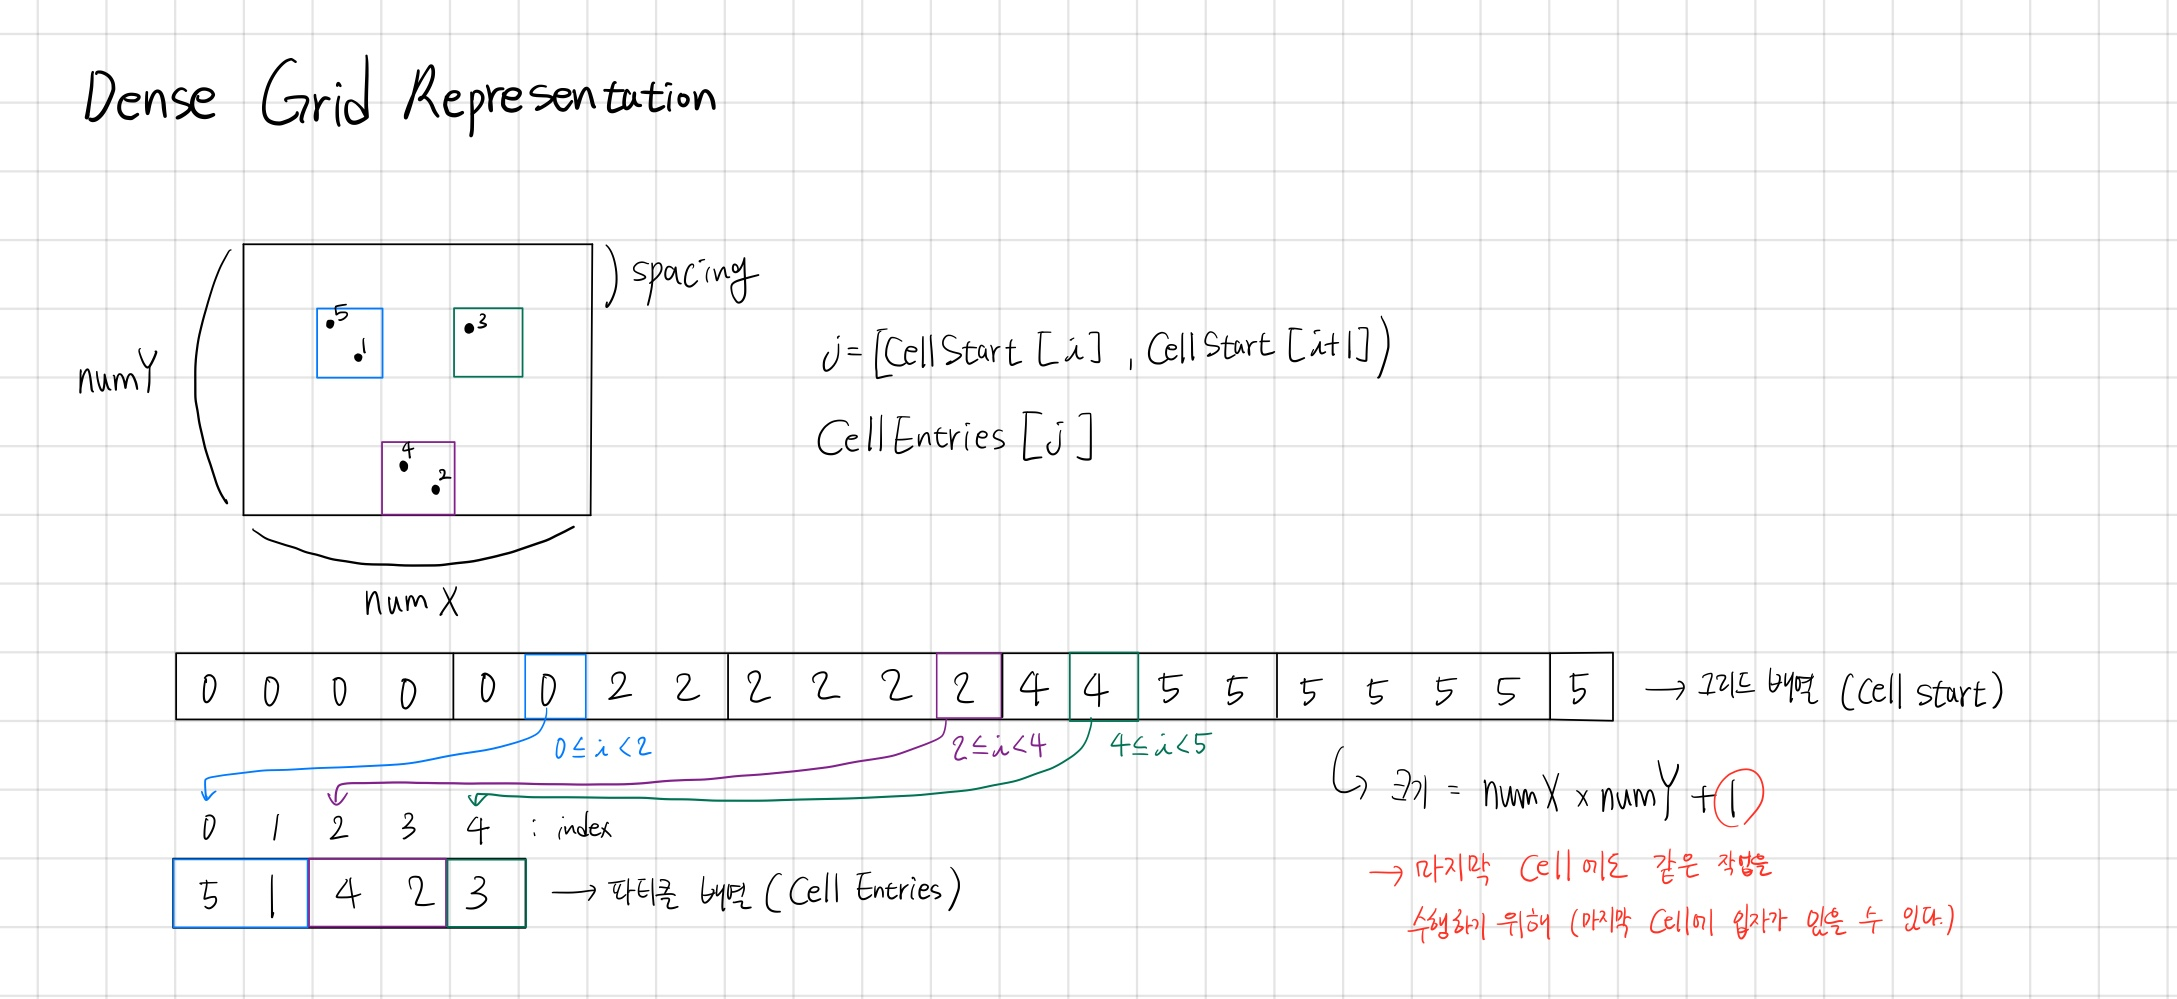 Dense Grid Representation
) spacing
5
1
3
numY
4
2
num X
j = [CellStart [i] , CellStart [i+1])
CellEntries [j]
0 0 0 0 0 0 2 2 2 2 2 2 4 4 5 5 5 5 5 5 5 → 그리드 배열 (Cell start)
0≤i<2 2≤i<4 4≤i<5
↳ 크기 = numX × numY + 1
0 1 2 3 4 : index
→ 마지막 Cell에도 같은 작업을
5 1 4 2 3 → 파티클 배열 (Cell Entries)
수행하기 위해 (마지막 Cell에 입자가 있을 수 있다.)